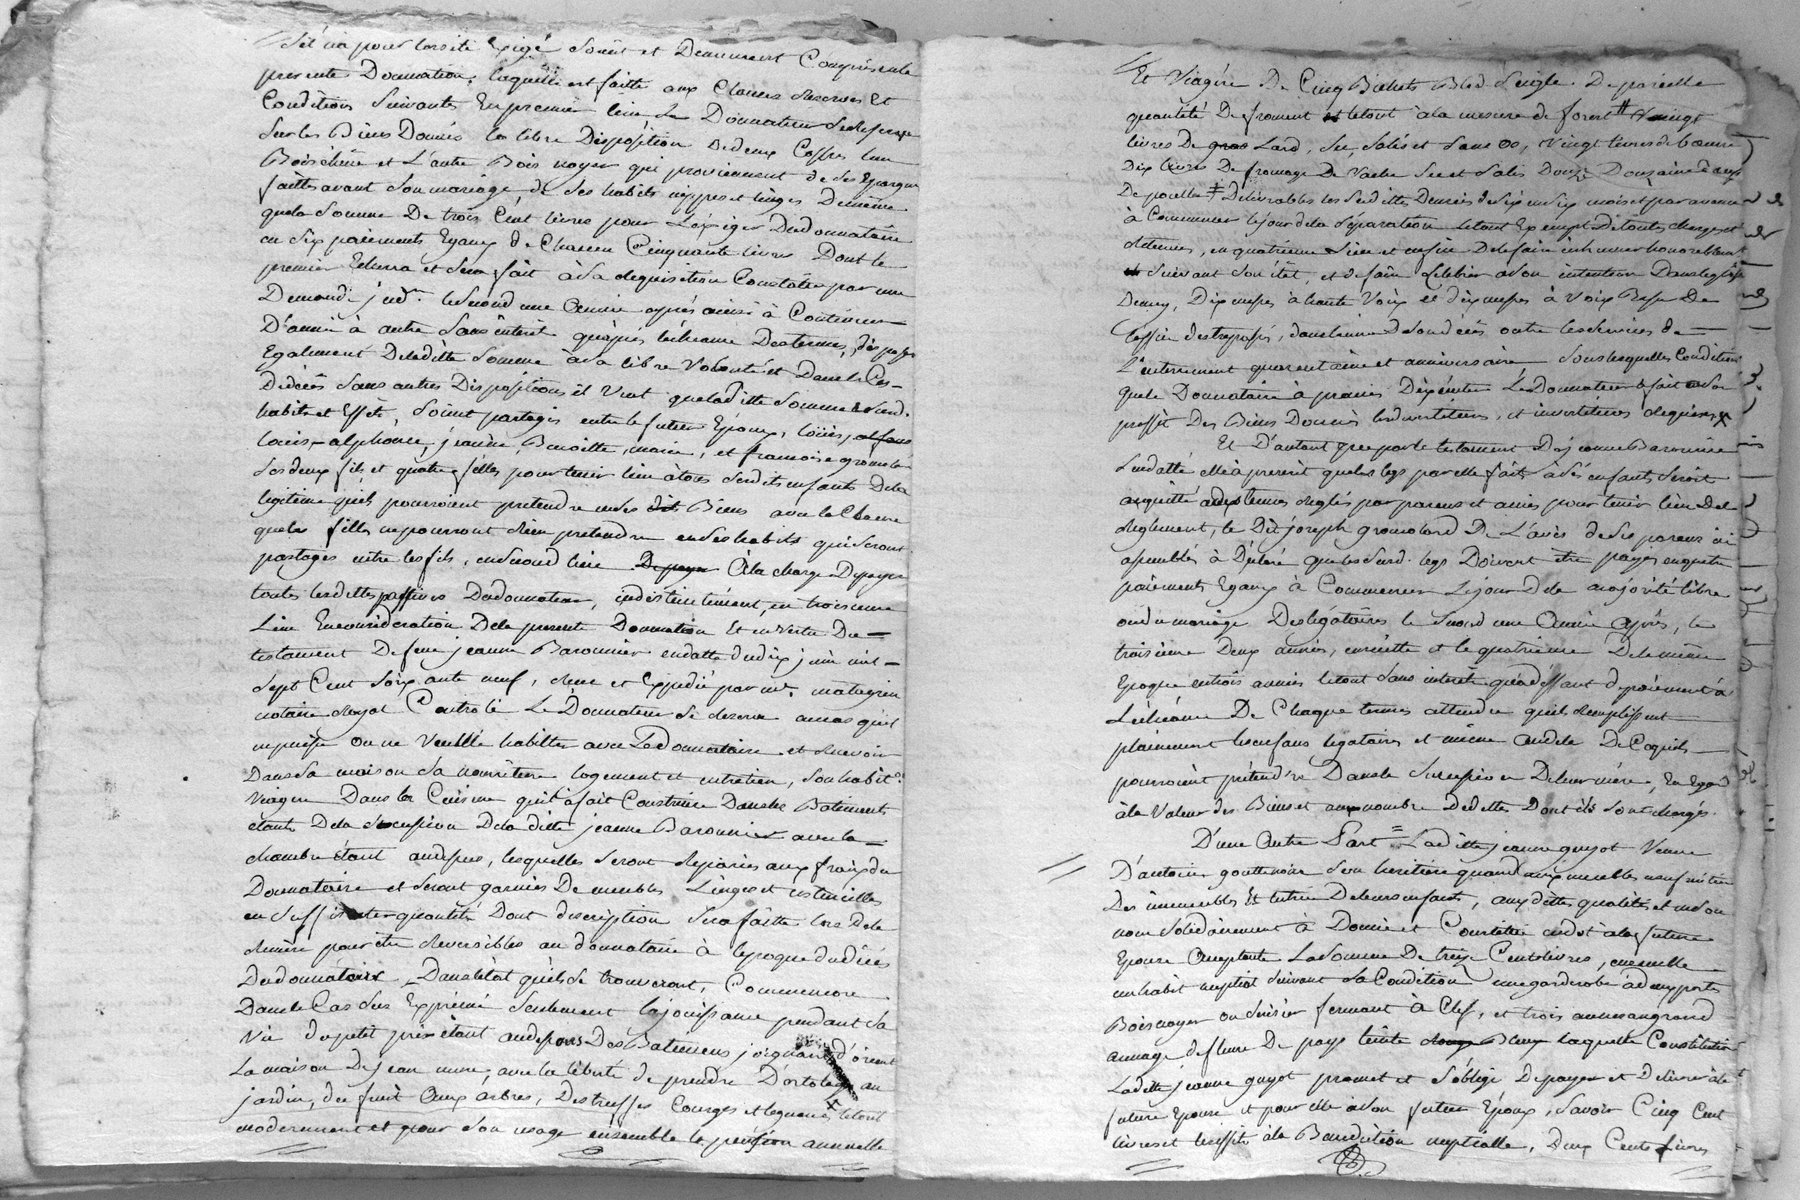 S'il n'a pour lors été Exigé Soient et Demeurent Compris en la
presente Donnation. laquelle est faitte aux Clauses Reserves Et
Conditions Suivantes En premier lieu Le Donnateur Se Reserve
Sur les Biens Donnés la libre Disposition De deux Coffres l'un
Bois chêne et L'autre Bois noyer qui proviennent de Ses Epargnes
faittes avant Son mariage, de Ses habits nippes et linges De même
que la Somme De trois Cent livres pour L'éxiger Du donnataire
en Six paiements Egaux de Chacun Cinquante livres Dont le
premier Echerra et Sera fait à Sa Requisition Constatée par une
Demande jud.re le Second une Année après ainsi à Continuer
D'année à autre Sans interêt qu'après l'écheance Des termes,
Egalement De laditte Somme à Sa libre Volonté et Dans le Cas
De décès Sans autres Dispositions il Veut que laditte Somme Sesd.
habits et Effets, Soient partagés entre le futur Epoux, loüis,
loüis-alphonse, jeanne, Benoitte, marie, et francoise
Ses deux fils et quatre filles pour tenir lieu à tous Sesdits enfants De la
legitime qu'ils pourroient pretendre en Ses dits Biens avec la Clause
que les filles ne pourront Rien pretendre en Ses habits qui Seront
partagés entre les fils, en Second lieu De payer à la charge De payer
toutes les dettes passives Du donnateur, indistinctement, en troisieme
Lieu En considération De la presente Donnation Et en Vertu Du
testament De feüe jeanne Baronnier en datte du dix juin mil
Sept Cent Soixante neuf, Reçu et Expedié par me.
notaire Royal Controlé Le Donnateur Se Reserve au cas qu'il
ne puisse ou ne Veuille habitter avec Le donnataire et Recevoir
Dans Sa maison Sa nourriture logement et entretien, Son habit.on
Viagere Dans la Cuisine qu'il a fait Construire Dans les Batiments
étants De la Succession De la ditte jeanne Baronnier avec la
chambre étant au dessus, lesquelles Seront Reparées aux fraix du
Donnataire et Seront garnies De meubles Linges et ustencilles
en Suffisante quantité Dont description Sera faitte lors De la
Remise pour être Reversibles au donnataire à l'epoque du décès
Du donnateur, Dans l'état qu'ils Se trouveront, Comme encore
Dans le Cas Sus Exprimé Seulement la joüissance pendant Sa
Vie du petit pré étant au dessous Des Batiments joignant d'orient
La maison De jean, avec la liberté de prendre D'ortolage au
jardin, du fruit aux arbres, Des truffes Courges et legumes le tout
moderement et pour Son usage ensemble la pension annuelle
Et Viagere De Cinq Bichets Bled Seigle. De pareille
quantité De froment et le tout à la mesure de forest # Vingt
livres De gras Lard, Sec, Salés et Sans os, Vingt livres de beurre
Dix livres De fromage De Vache Sec et Salés Douze Douzaine d'œufs
De poulles Delivrables les Susdittes Denrées de Six en Six mois et par avance
à Commencer le jour de la Séparation le tout Exempt De toutes charges et
Retenues, en quatrieme Lieu et enfin De le faire inhumer honorablement
Suivant Son état, et de faire Celebrer à Son intention Dans leglise
Dix messes à haute Voix et dix messes à Voix Basse De
l'office des trepassés, dans l'année de Son décès outre les Services de
L'enterrement quarantaine et anniversaire Sous lesquelles Conditions
que le Donnataire à promis D'éxécuter Le Donnateur S'est fait à Son
proffit Des Biens Donnés les devestitures, et investitures Requises
Et D'autant que par le testament De jeanne Baronnier
Susdatté elle à prescrit que les legs par elle fait à Ses enfants Seroit
acquitté aux termes Réglés par parens et amis pour tenir lieu De
Reglement, le Dit joseph De L'avis de Ses parens ici
assemblés à Déclaré que les Susd. legs Doivent être payés en quatre
paiements Egaux à Commencer Le jour De la majorité libre
ou du mariage Des légataires le Second une Année après, le
troisieme Deux années, ensuitte et le quatrieme De la même
Epoque en trois années le tout Sans interêt qu'à deffaut de paiement à
L'écheance De Chaque termes attendu qu'ils Remplissent
pleinement les enfans legataires et même au dela De Ce qu'ils
pourroient prétendre Dans la Succession De leur mere, En Egard
à la Valeur des Biens et au nombre De dettes Dont ils Sont chargés.
D'une Autre Part = Laditte jeanne guyot Veuve
D'antoine gouttenoire Son heritiere quand aux meubles usufruitiere
Des immeubles Et tutrice De leurs enfants, aux dittes qualités et en Son
nom Solidairement à Donné et Constitué en dot à la future
Epouse Acceptante La Somme De treize Cent livres, ensemble
un habit nuptial Suivant Sa Condition une garderobe à deux portes
Bois noyer ou Cerisier fermant à Clef, et trois aunes au grand
aunage de fleuret De pays teinte Rouge Bleu laquelle Constitution
Laditte jeanne guyot promet et S'oblige De payer et Delivrer à la
future Epouse et pour elle à Son futur Epoux, Savoir Cinq Cent
livres et les effets à la Benediction nuptialle, Deux Cents livres